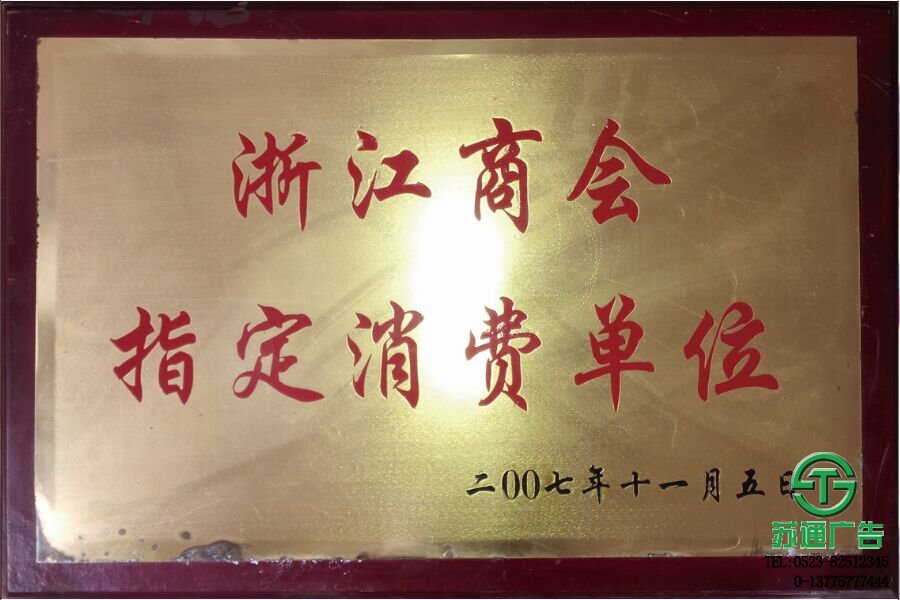 浙江商会
指定消费单位
二00七年十一月五日
苏通广告
TEL:0523-82512345
0-13775777444